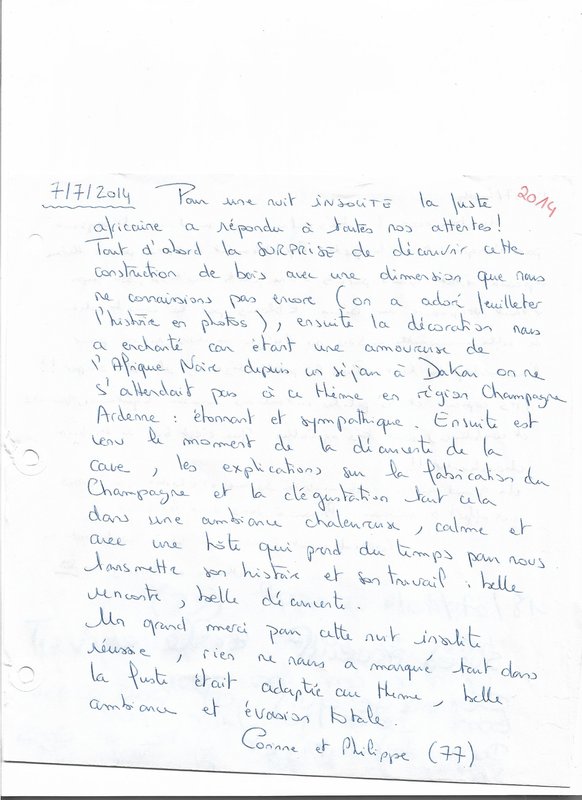 7/7/2014 Pour une nuit INSOLITE la fuste
2014
africaine a répondu à toutes nos attentes !
Tout d'abord la SURPRISE de découvrir cette
construction de bois avec une dimension que nous
ne connaissions pas encore (on a adoré feuilleter
l'histoire en photos), ensuite la décoration nous
a enchanté car étant une amoureuse de
l'Afrique Noire depuis un séjour à Dakar on ne
s'attendait pas à ce thème en région Champagne
Ardenne : étonnant et sympathique. Ensuite est
venu le moment de la découverte de la
cave, les explications sur la fabrication du
Champagne et la dégustation tout cela
dans une ambiance chaleureuse, calme et
avec une hôte qui prend du temps pour nous
transmettre son histoire et son travail : belle
rencontre, belle découverte.
Un grand merci pour cette nuit insolite
réussie, rien ne nous a manqué tout dans
la fuste était adaptée au thème, belle
ambiance et évasion totale.
Corinne et Philippe (77)